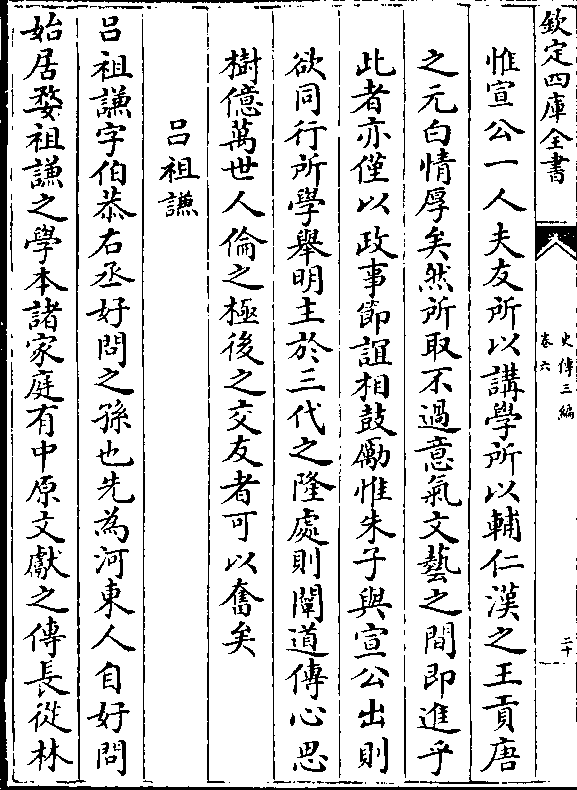 欽定四庫全書
史傳三編
卷六
二十
惟宣公一人夫友所以講學所以輔仁漢之王貢唐
之元白情厚矣然所取不過意氣文藝之間即進乎
此者亦僅以政事節誼相鼓勵惟朱子與宣公出則
欲同行所學舉明主於三代之隆處則闡道傳心思
樹億萬世人倫之極後之交友者可以奮矣
呂祖謙
呂祖謙字伯恭右丞好問之孫也先為河東人自好問
始居婺祖謙之學本諸家庭有中原文獻之傳長從林